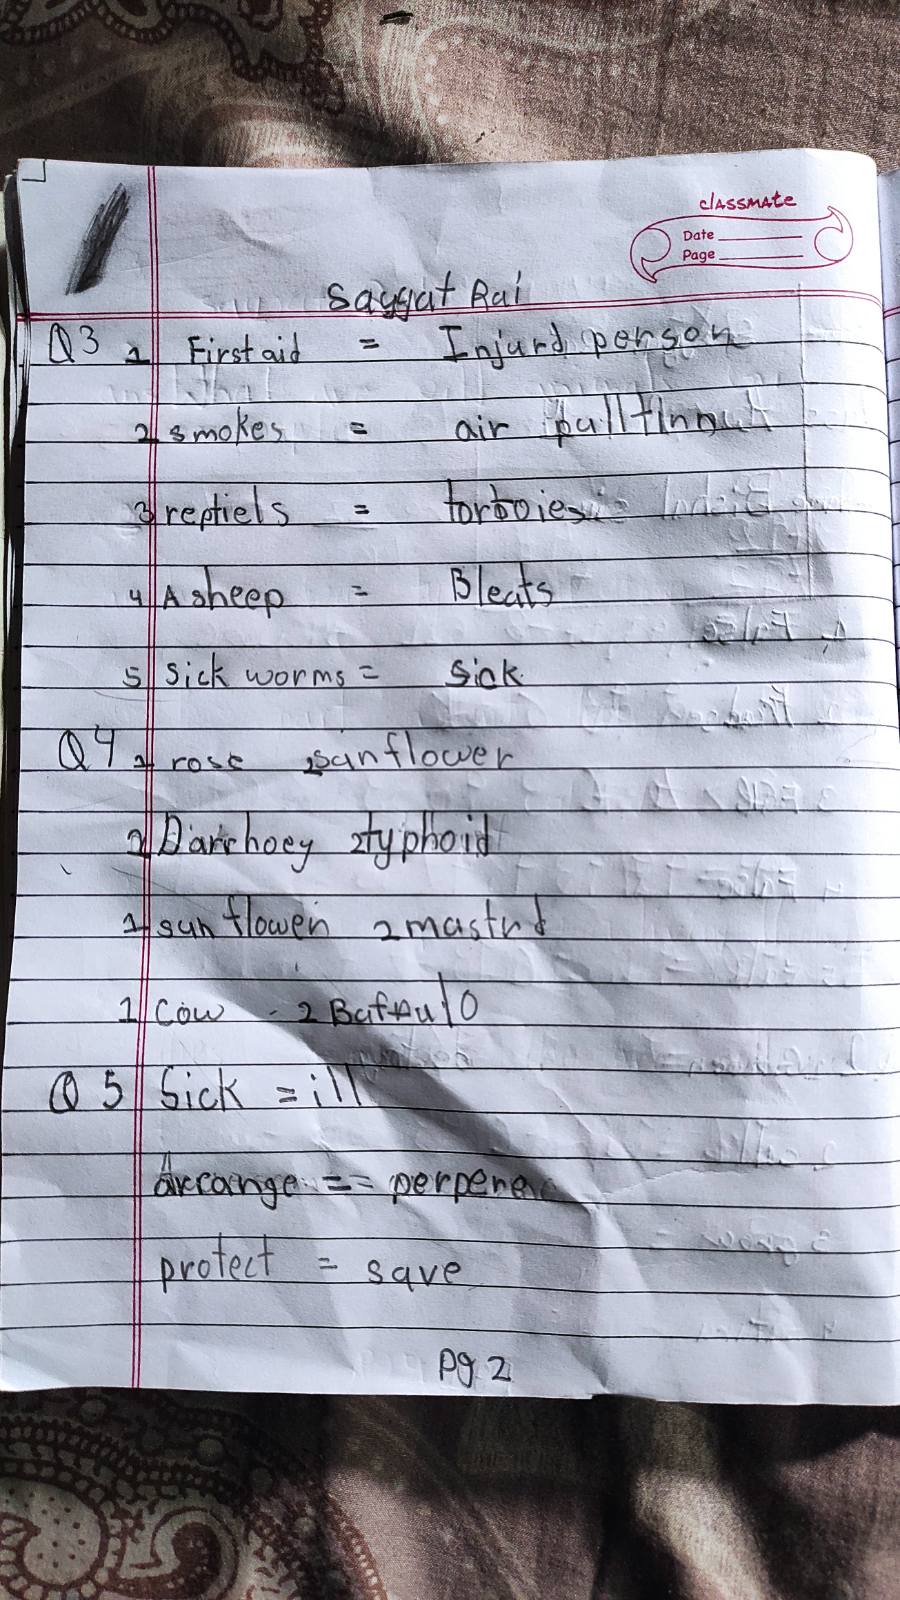 classmate
Date
Page
Sayyat Rai
Q3 1 First aid = Injurd person
2 smokes = air
3 reptiels = tortoies
4 A sheep = Bleats
5 Sick worms = Sick
Q4 1 rose 2 sanflower
2 Darrhoey 2 typhoid
1 sun flower 2 mastrd
1 Cow - 2
Q 5 Sick = ill
Arrange = = perpere
protect = save
pg 2